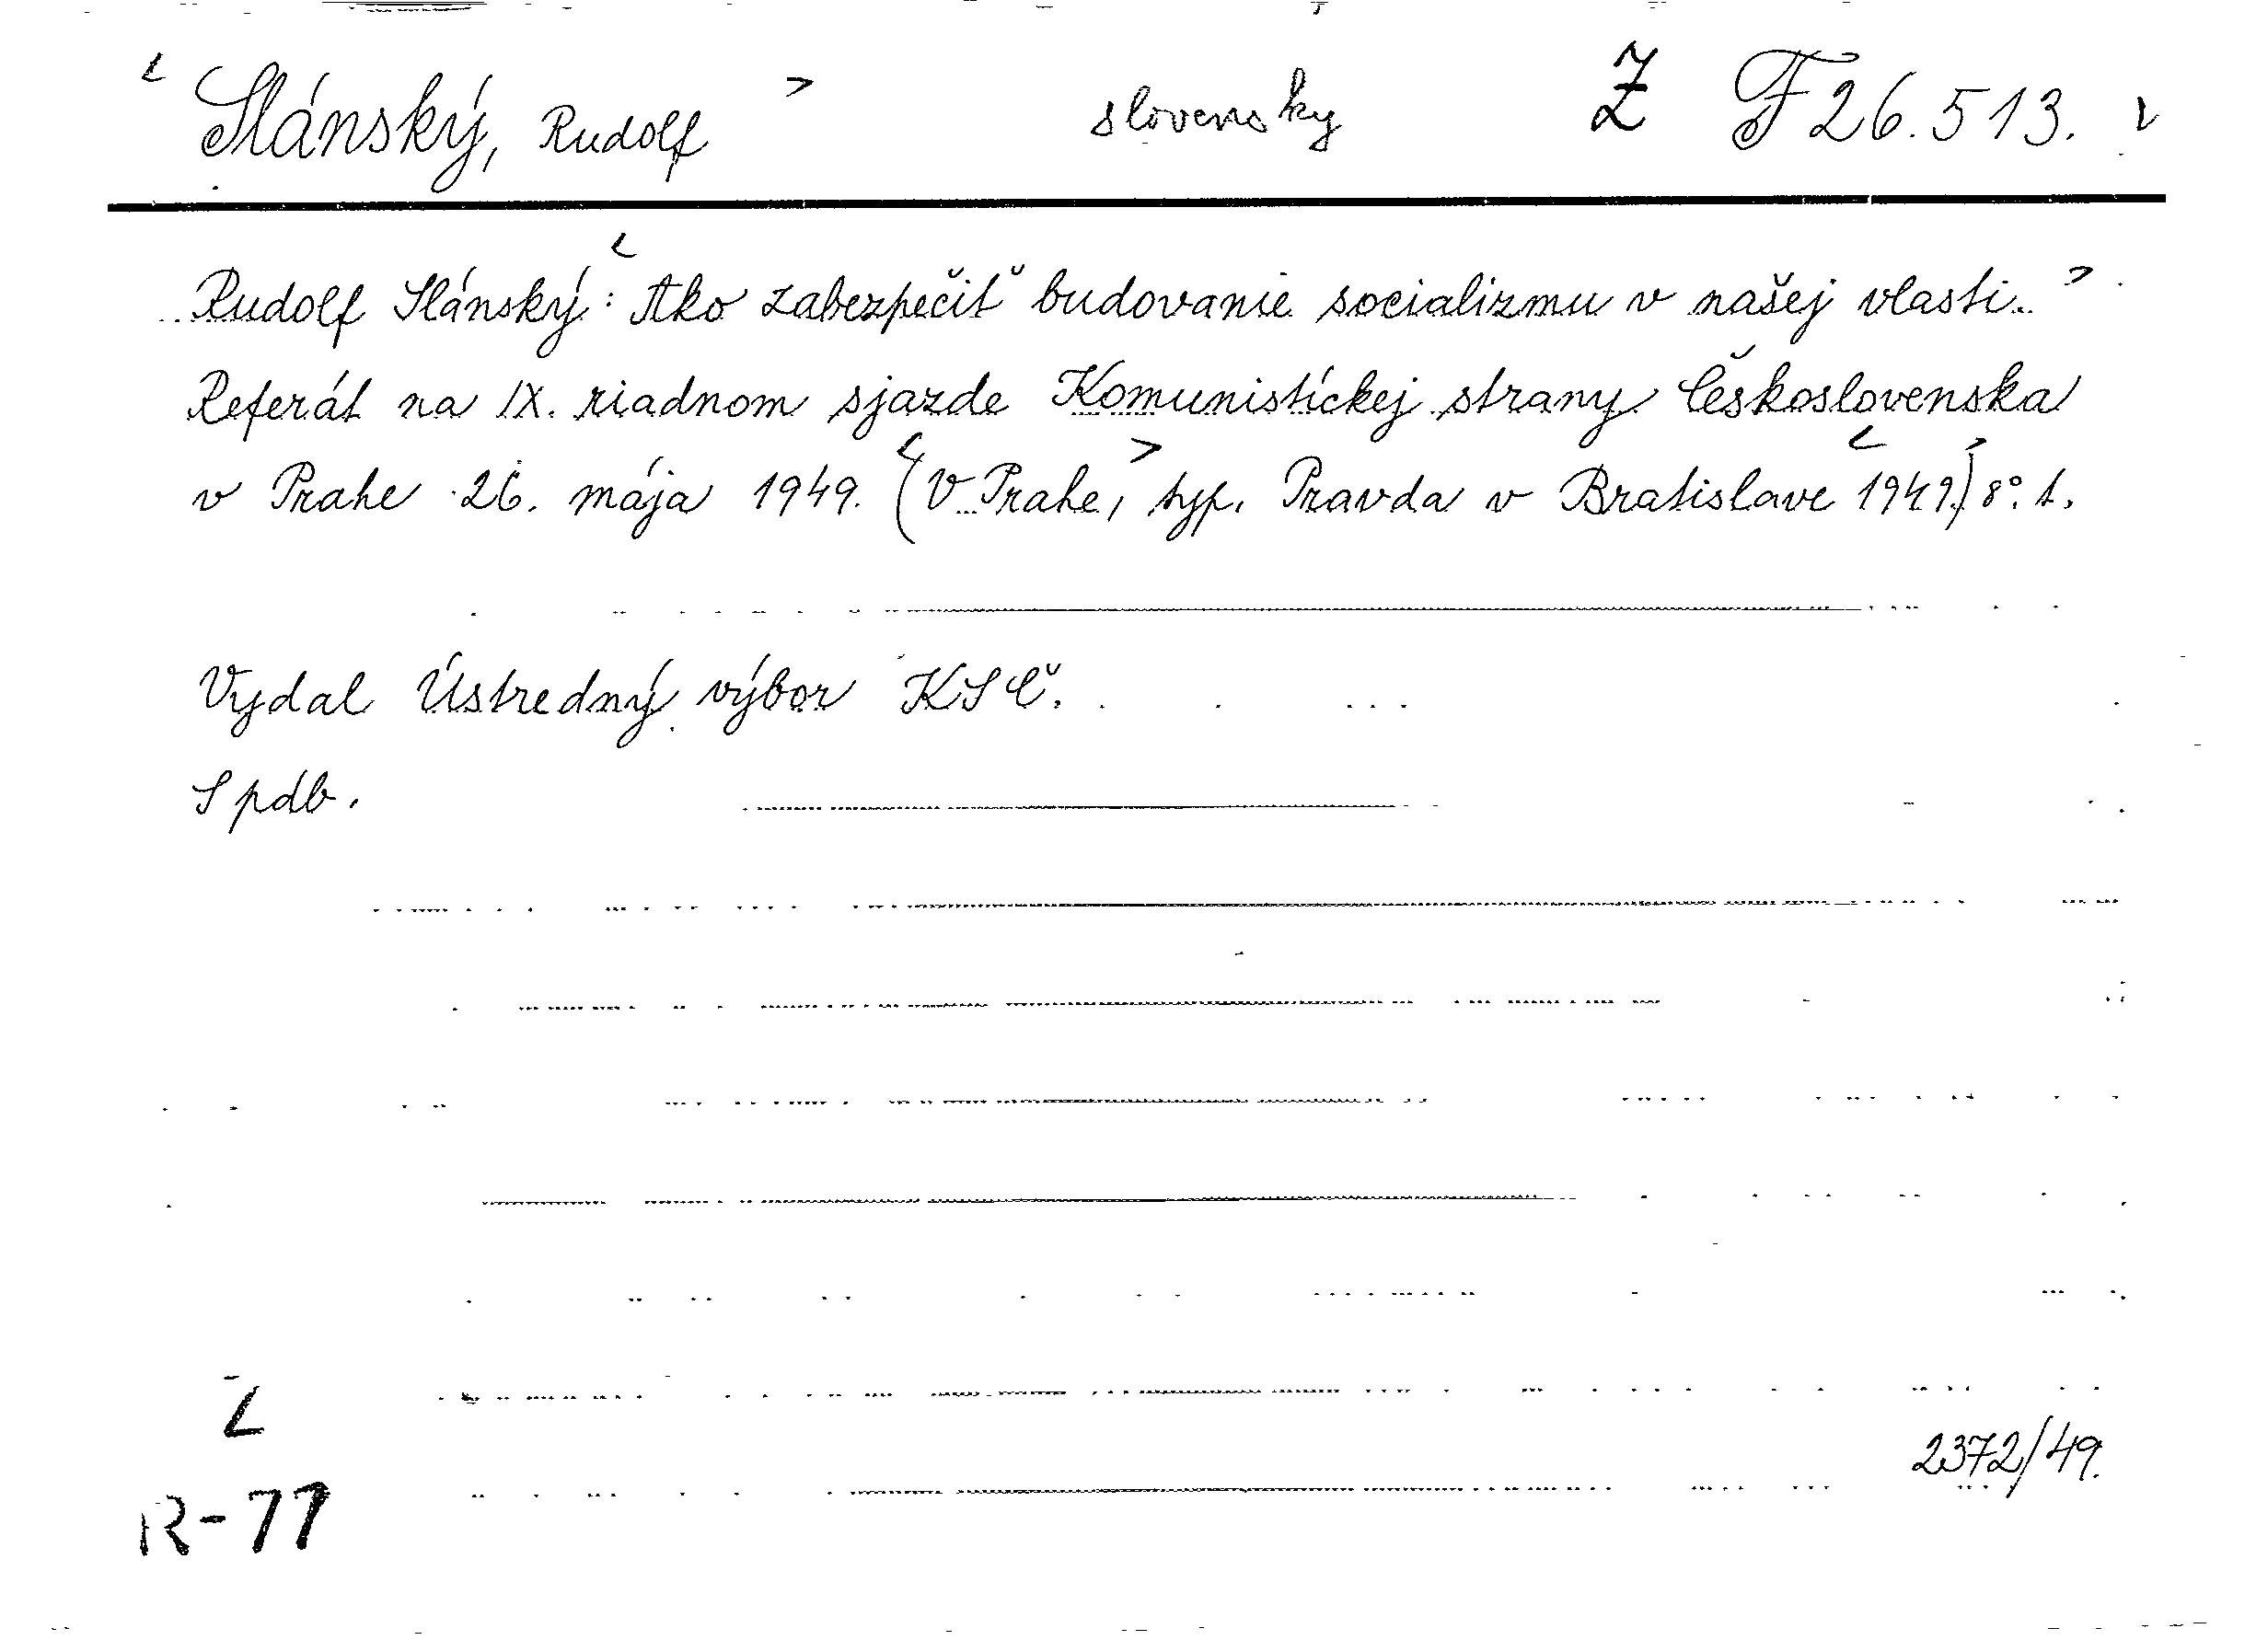 Slánský, Rudolf slovensky Z F 26.513.
Rudolf Slánský: Ako zabezpečiť budovanie socializmu v našej vlasti.
Referát na IX. riadnom sjazde Komunistíckej strany Československa
v Prahe 26. mája 1949. (V Prahe, typ. Pravda v Bratislave 1949.) 8°. t.
Vydal Ústredný výbor KSČ.
S pdb.
Z
2372/49.
R-77